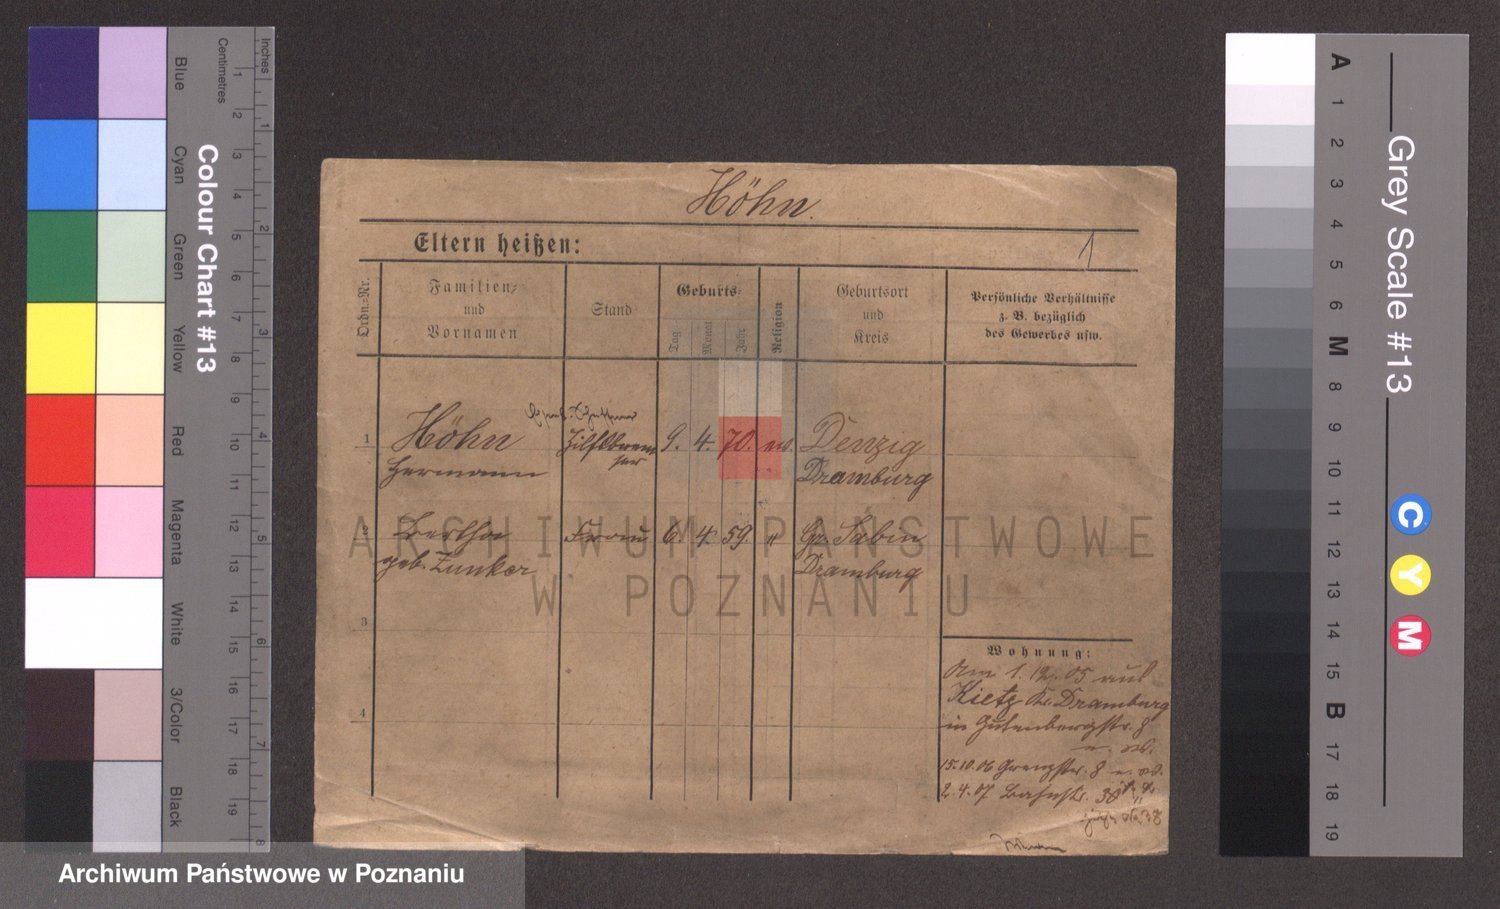 Inches
Centimetres
Colour Chart #13
Blue
Cyan
Green
Yellow
Red
Magenta
White
3/Color
Black
1 2 3 4 5 6 7 8 9 10 11 12 13 14 15 16 17 18 19
1 2 3 4 5 6 7 8
Höhn.
Eltern heißen:
1
Ordn.=Nr.
Familien=
und
Vornamen
Stand
Geburts=
Tag
Monat
Jahr
Religion
Geburtsort
und
Kreis
Persönliche Verhältnisse
z. B. bezüglich
des Gewerbes usw.
1
Höhn Hilfsbrem 9. 4. 70. ev. Denzig
Hermann ser Dramburg
2
Bertha Frau 6. 4. 59. " Gr. Sabin
geb. Zunker Dramburg
3
4
Wohnung:
Am 1. 12. 05 aus
Kietz Kr. Dramburg
in Gutenbergstr. 8
15.10.06 Grenzstr. 8
2.4.07 Bahnstr. 38
ARCHIWUM PAŃSTWOWE
W POZNANIU
Archiwum Państwowe w Poznaniu
Grey Scale #13
A 1 2 3 4 5 6 M 8 9 10 11 12 13 14 15 B 17 18 19
C
Y
M